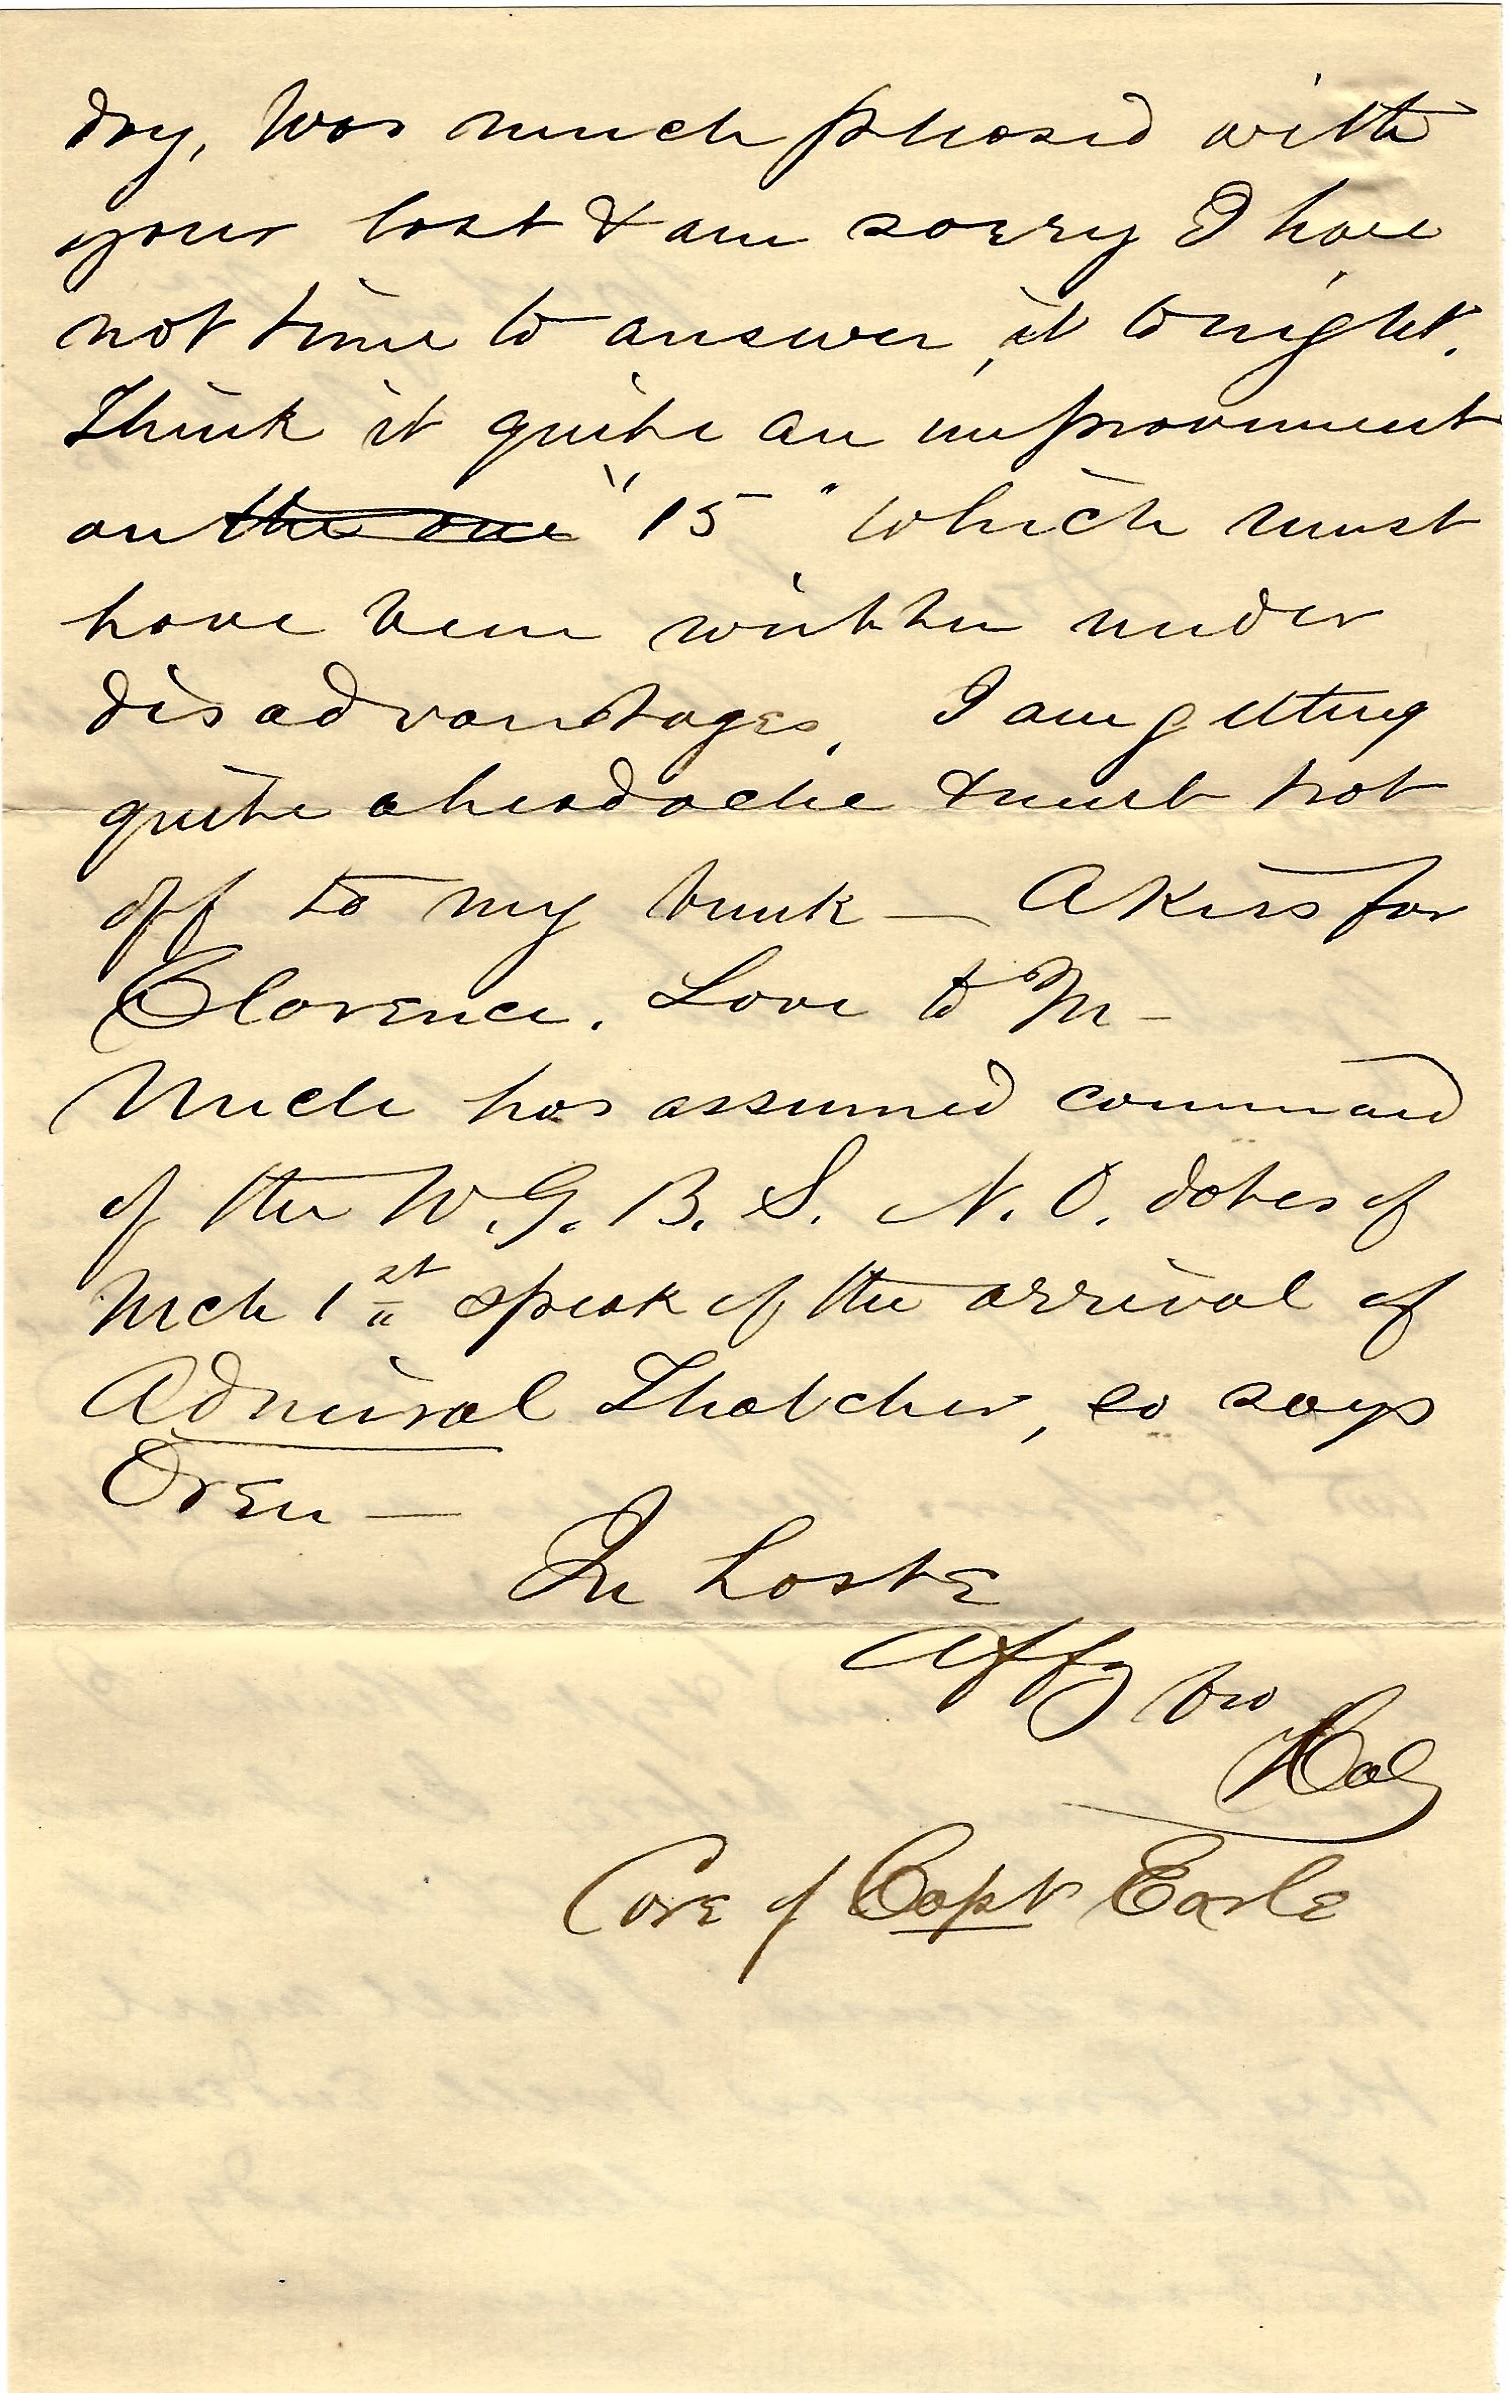 dry, Was much pleased with
your last & am sorry I have
not time to answer it tonight.
Think it quite an improvement
on the one "15" which must
have been written under
disadvantages. I am getting
quite a headache & must trot
off to my bunk — A Kiss for
Clarence. Love to M —
Uncle has assumed command
of the W. G. B. S. N. O. dates of
Mch 1st speak of the arrival of
Admiral Thatcher, so says
Oren —
In haste
Affy bro
Hal
Care of Capt Earle